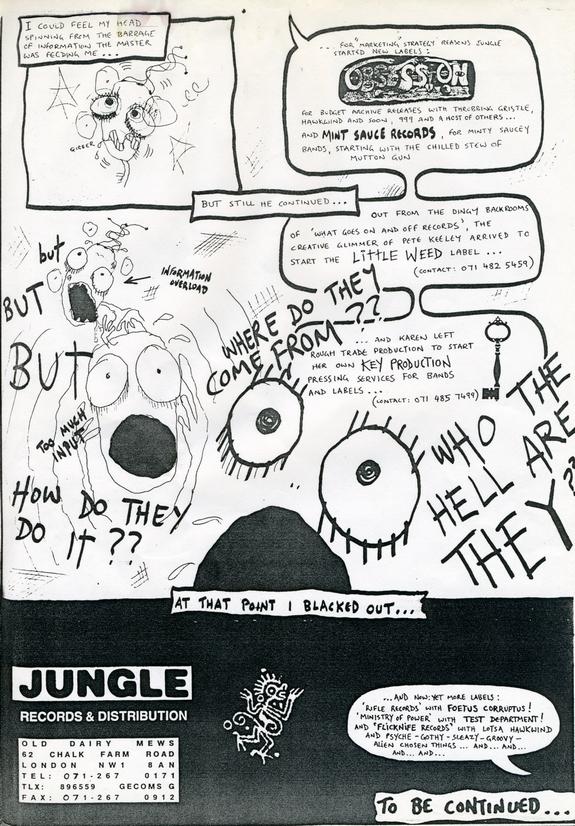 I COULD FEEL MY HEAD
SPINNING FROM THE BARRAGE
OF INFORMATION THE MASTER
WAS FEEDING ME...
GIBBER
... FOR "MARKETING" STRATEGY REASONS JUNGLE
STARTED NEW LABELS:
OBSESSION
FOR BUDGET ARCHIVE RELEASES WITH THROBBING GRISTLE,
HAWKWIND AND SOON, 999 AND A HOST OF OTHERS...
AND MINT SAUCE RECORDS, FOR MINTY SAUCEY
BANDS, STARTING WITH THE CHILLED STEW OF
MUTTON GUN
BUT STILL HE CONTINUED...
OUT FROM THE DINGY BACKROOMS
OF 'WHAT GOES ON AND OFF RECORDS', THE
CREATIVE GLIMMER OF PETE KEELEY ARRIVED TO
START THE LITTLE WEED LABEL ...
(CONTACT: 071 482 5459)
but
BUT
BUT
INFORMATION
OVERLOAD
TOO MUCH
INPUT
WHERE DO THEY
COME FROM ??
... AND KAREN LEFT
ROUGH TRADE PRODUCTION TO START
HER OWN KEY PRODUCTION
PRESSING SERVICES FOR BANDS
AND LABELS ...
(CONTACT: 071 485 7499)
WHO THE
HELL ARE
THEY ??
HOW DO THEY
DO IT ??
AT THAT POINT I BLACKED OUT...
JUNGLE
RECORDS & DISTRIBUTION
OLD DAIRY MEWS
62 CHALK FARM ROAD
LONDON NW1 8AN
TEL: 071-267 0171
TLX: 896559 GECOMS G
FAX: 071-267 0912
...AND NOW: YET MORE LABELS:
'RIFLE RECORDS' WITH FOETUS CORRUPTUS!
'MINISTRY OF POWER' WITH TEST DEPARTMENT!
AND 'FLICKNIFE RECORDS' WITH LOTSA HAWKWIND
AND PSYCHE-GOTHY-SLEAZY-GROOVY-
ALIEN CHOSEN THINGS ... AND... AND...
AND... AND...
TO BE CONTINUED...